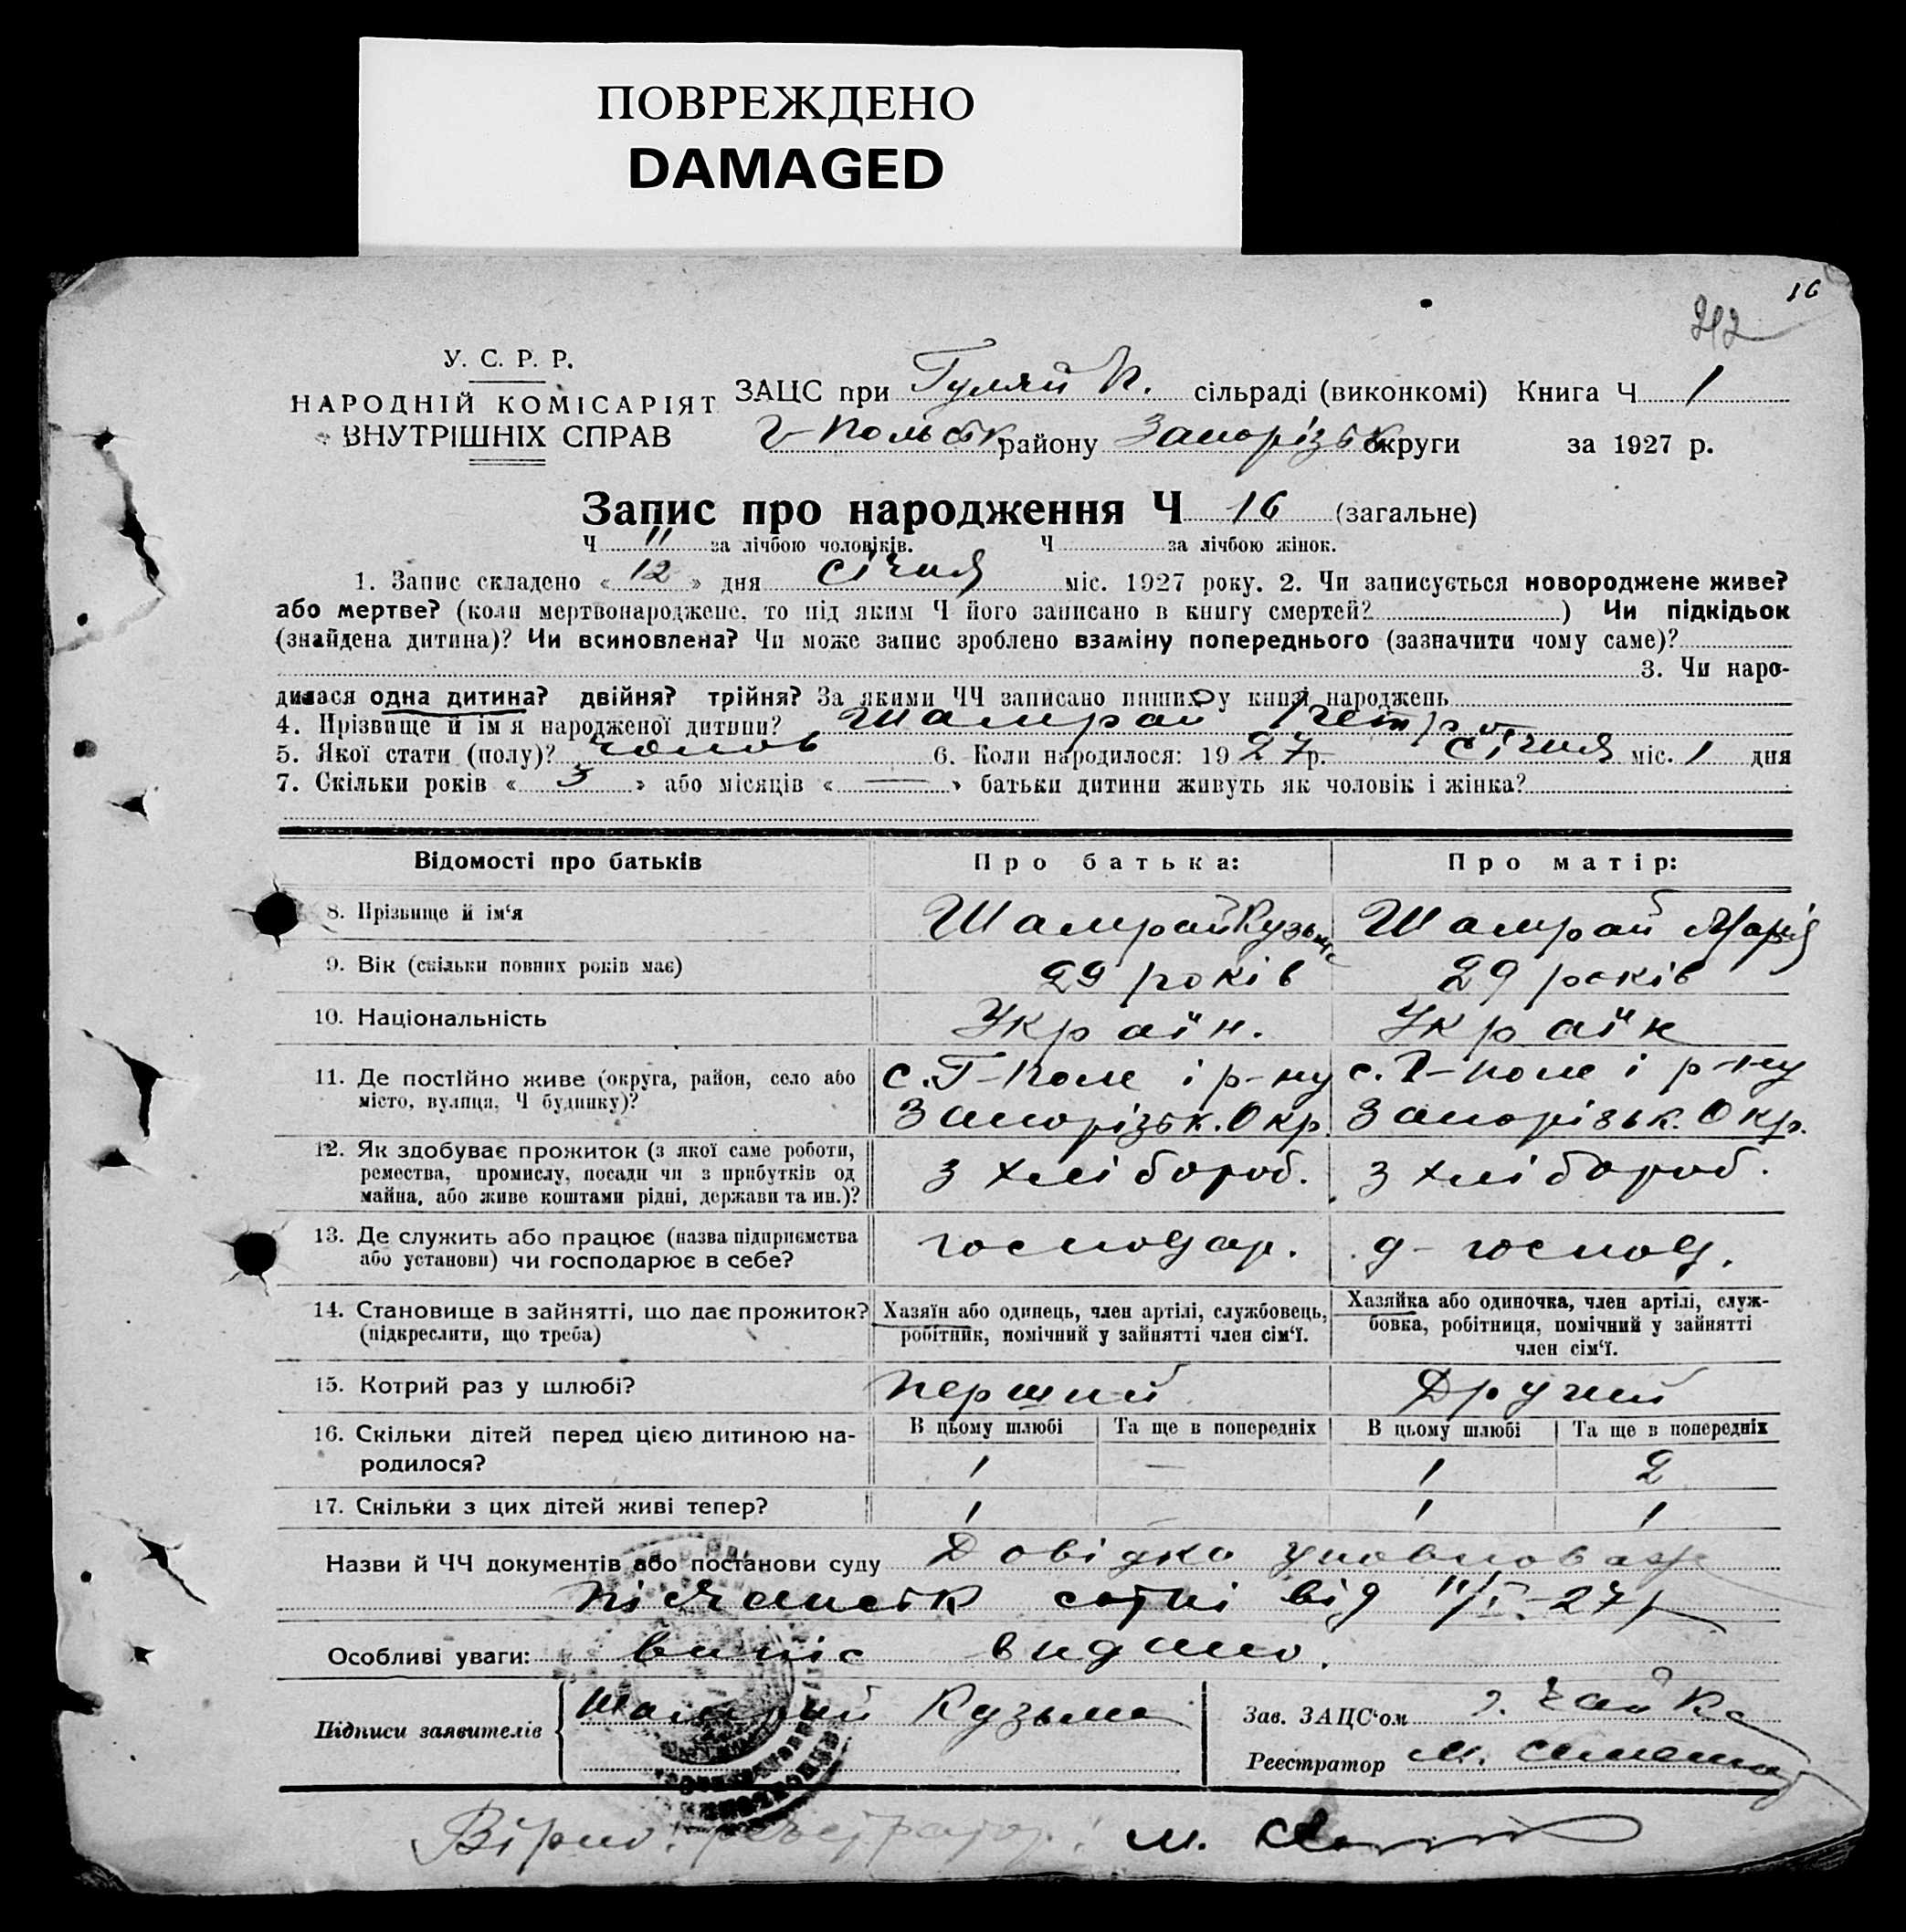 ПОВРЕЖДЕНО
DAMAGED
16
212
У. С. Р. Р.
НАРОДНІЙ КОМІСАРІЯТ
ВНУТРІШНІХ СПРАВ
ЗАЦС при Гуляй П. сільраді (виконкомі) Книга Ч 1
Г-Польськ району Запорізьк округи за 1927 р.
Запис про народження Ч 16 (загальне)
Ч 11 за лічбою чоловіків. Ч за лічбою жінок.
1. Запис складено « 12 » дня січня міс. 1927 року. 2. Чи записується новороджене живе?
або мертве? (коли мертвонароджене, то під яким Ч його записано в книгу смертей? ) Чи підкідьок
(знайдена дитина)? Чи всиновлена? Чи може запис зроблено взаміну попереднього (зазначити чому саме)?
3. Чи наро-
дилася одна дитина? двійня? трійня? За якими ЧЧ записано инших у книзі народжень
4. Прізвище й ім'я народженої дитини? Шамрай Петро
5. Якої стати (полу)? чолов 6. Коли народилося: 1927 р. січня міс. 1 дня
7. Скільки років « 3 » або місяців « — » батьки дитини живуть як чоловік і жінка?
Відомості про батьків Про батька: Про матір:
8. Прізвище й ім'я Шамрай Кузьма Шамрай Марія
9. Вік (скільки повних років має) 29 років 29 років
10. Національність Україн. Україн
11. Де постійно живе (округа, район, село або с. Г-Поле і р-ну с. Г-Поле і р-ну
місто, вулиця, Ч будинку)? Запорізьк. Окр. Запорізьк. Окр.
12. Як здобуває прожиток (з якої саме роботи,
ремества, промислу, посади чи з прибутків од з хлібороб. з хлібороб.
майна, або живе коштами рідні, держави та ин.)?
13. Де служить або працює (назва підприємства господар. д-господ.
або установи) чи господарює в себе?
14. Становище в зайнятті, що дає прожиток? Хазяїн або одинець, член артілі, службовець, Хазяйка або одиночка, член артілі, служ-
(підкреслити, що треба) робітник, помічний у зайнятті член сім'ї. бовка, робітниця, помічний у зайнятті
член сім'ї.
15. Котрий раз у шлюбі? Перший Другий
16. Скільки дітей перед цією дитиною на- В цьому шлюбі Та ще в попередніх В цьому шлюбі Та ще в попередніх
родилося? 1 — 1 2
17. Скільки з цих дітей живі тепер? 1 — 1 1
Назви й ЧЧ документів або постанови суду Довідка уповноваж
Піщанськ сотні від 11/I-27 р
Особливі уваги: випис видано.
Підписи заявителів Шамрай Кузьма Зав. ЗАЦС'ом Чайка
Реєстратор М.
Вірно: реєстратор: М.